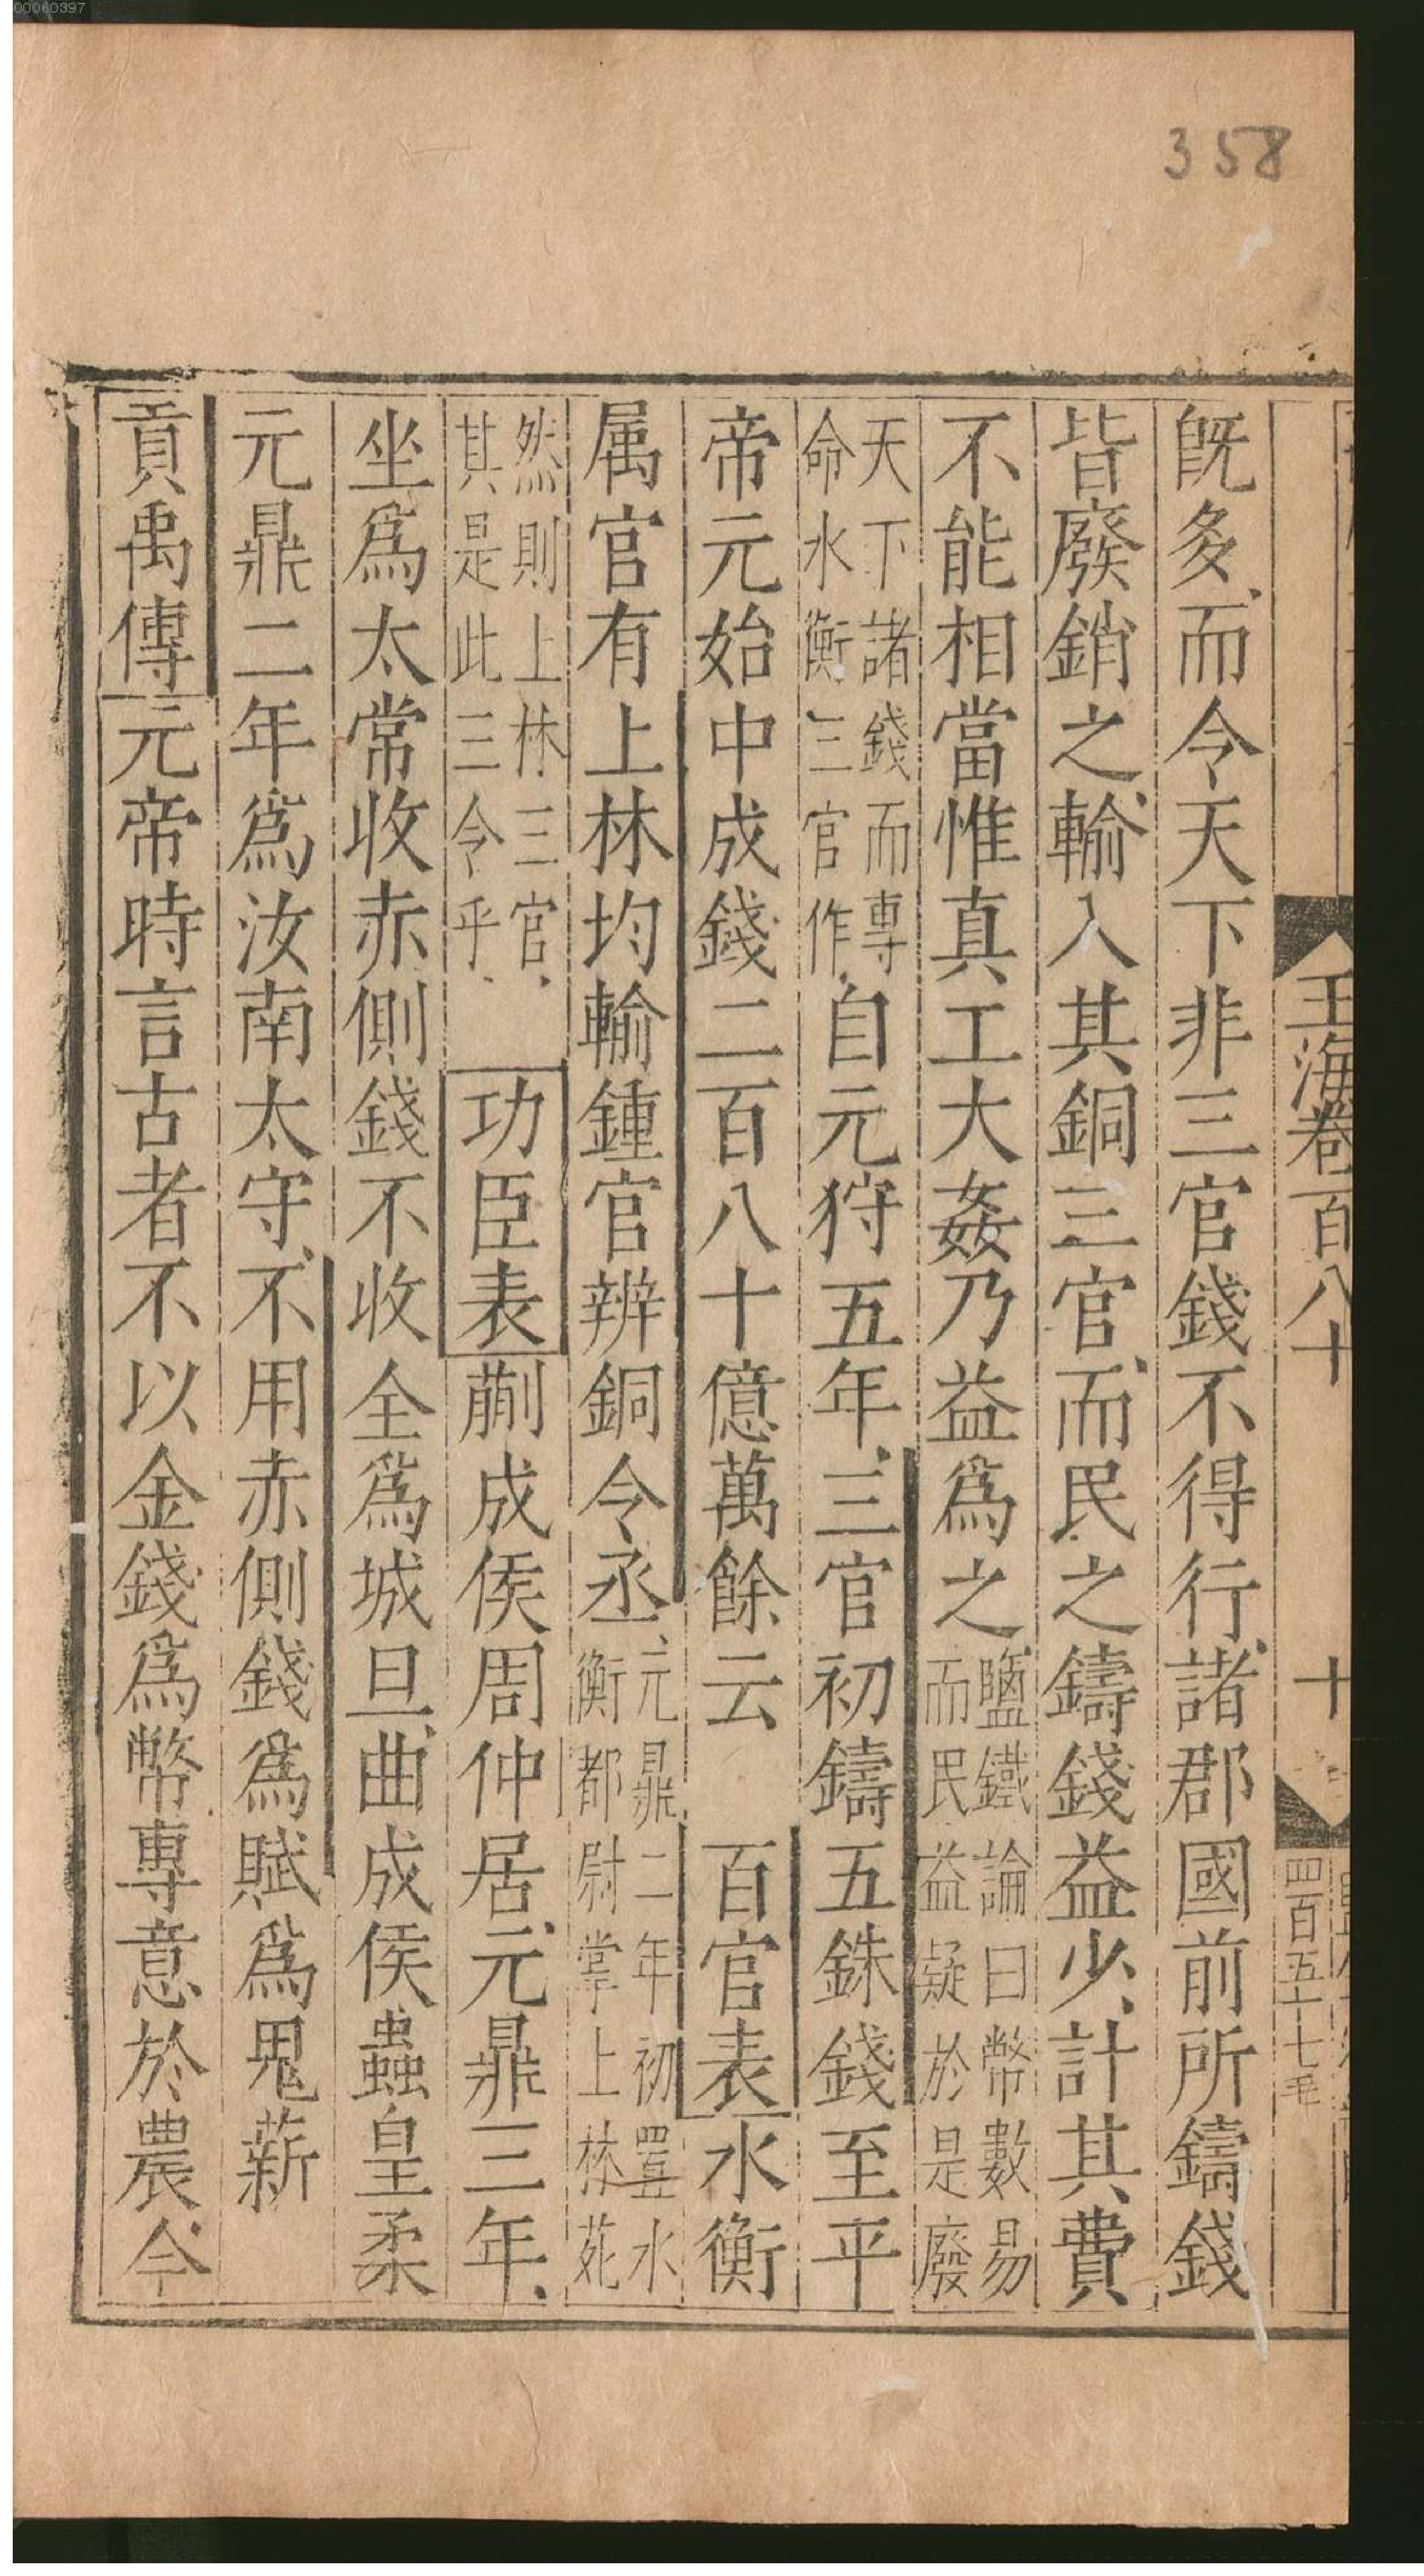 00060397
358
玉海卷百八十
十
四百五十七毛
既多而令天下非三官錢不得行諸郡國前所鑄錢
皆廢銷之輸入其銅三官而民之鑄錢益少計其費
不能相當惟真工大姦乃益為之鹽鐵論曰幣數易而民益疑於是廢
天下諸錢而專命水衡三官作自元狩五年三官初鑄五銖錢至平
帝元始中成錢二百八十億萬餘云 百官表水衡
属官有上林均輸鍾官辨銅令丞元鼎二年初置水衡都尉掌上林苑
然則上林三官其是此三令乎 功臣表蒯成侯周仲居元鼎三年
坐為太常收赤側錢不收全為城旦曲成侯蟲皇柔
元鼎二年為汝南太守不用赤側錢為賦為鬼薪
貢禹傳元帝時言古者不以金錢為幣專意於農今